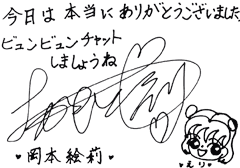 今日は本当にありがとうございました
ビュンビュンチャット
しましょうね
♥岡本絵莉♥
♥えり♥